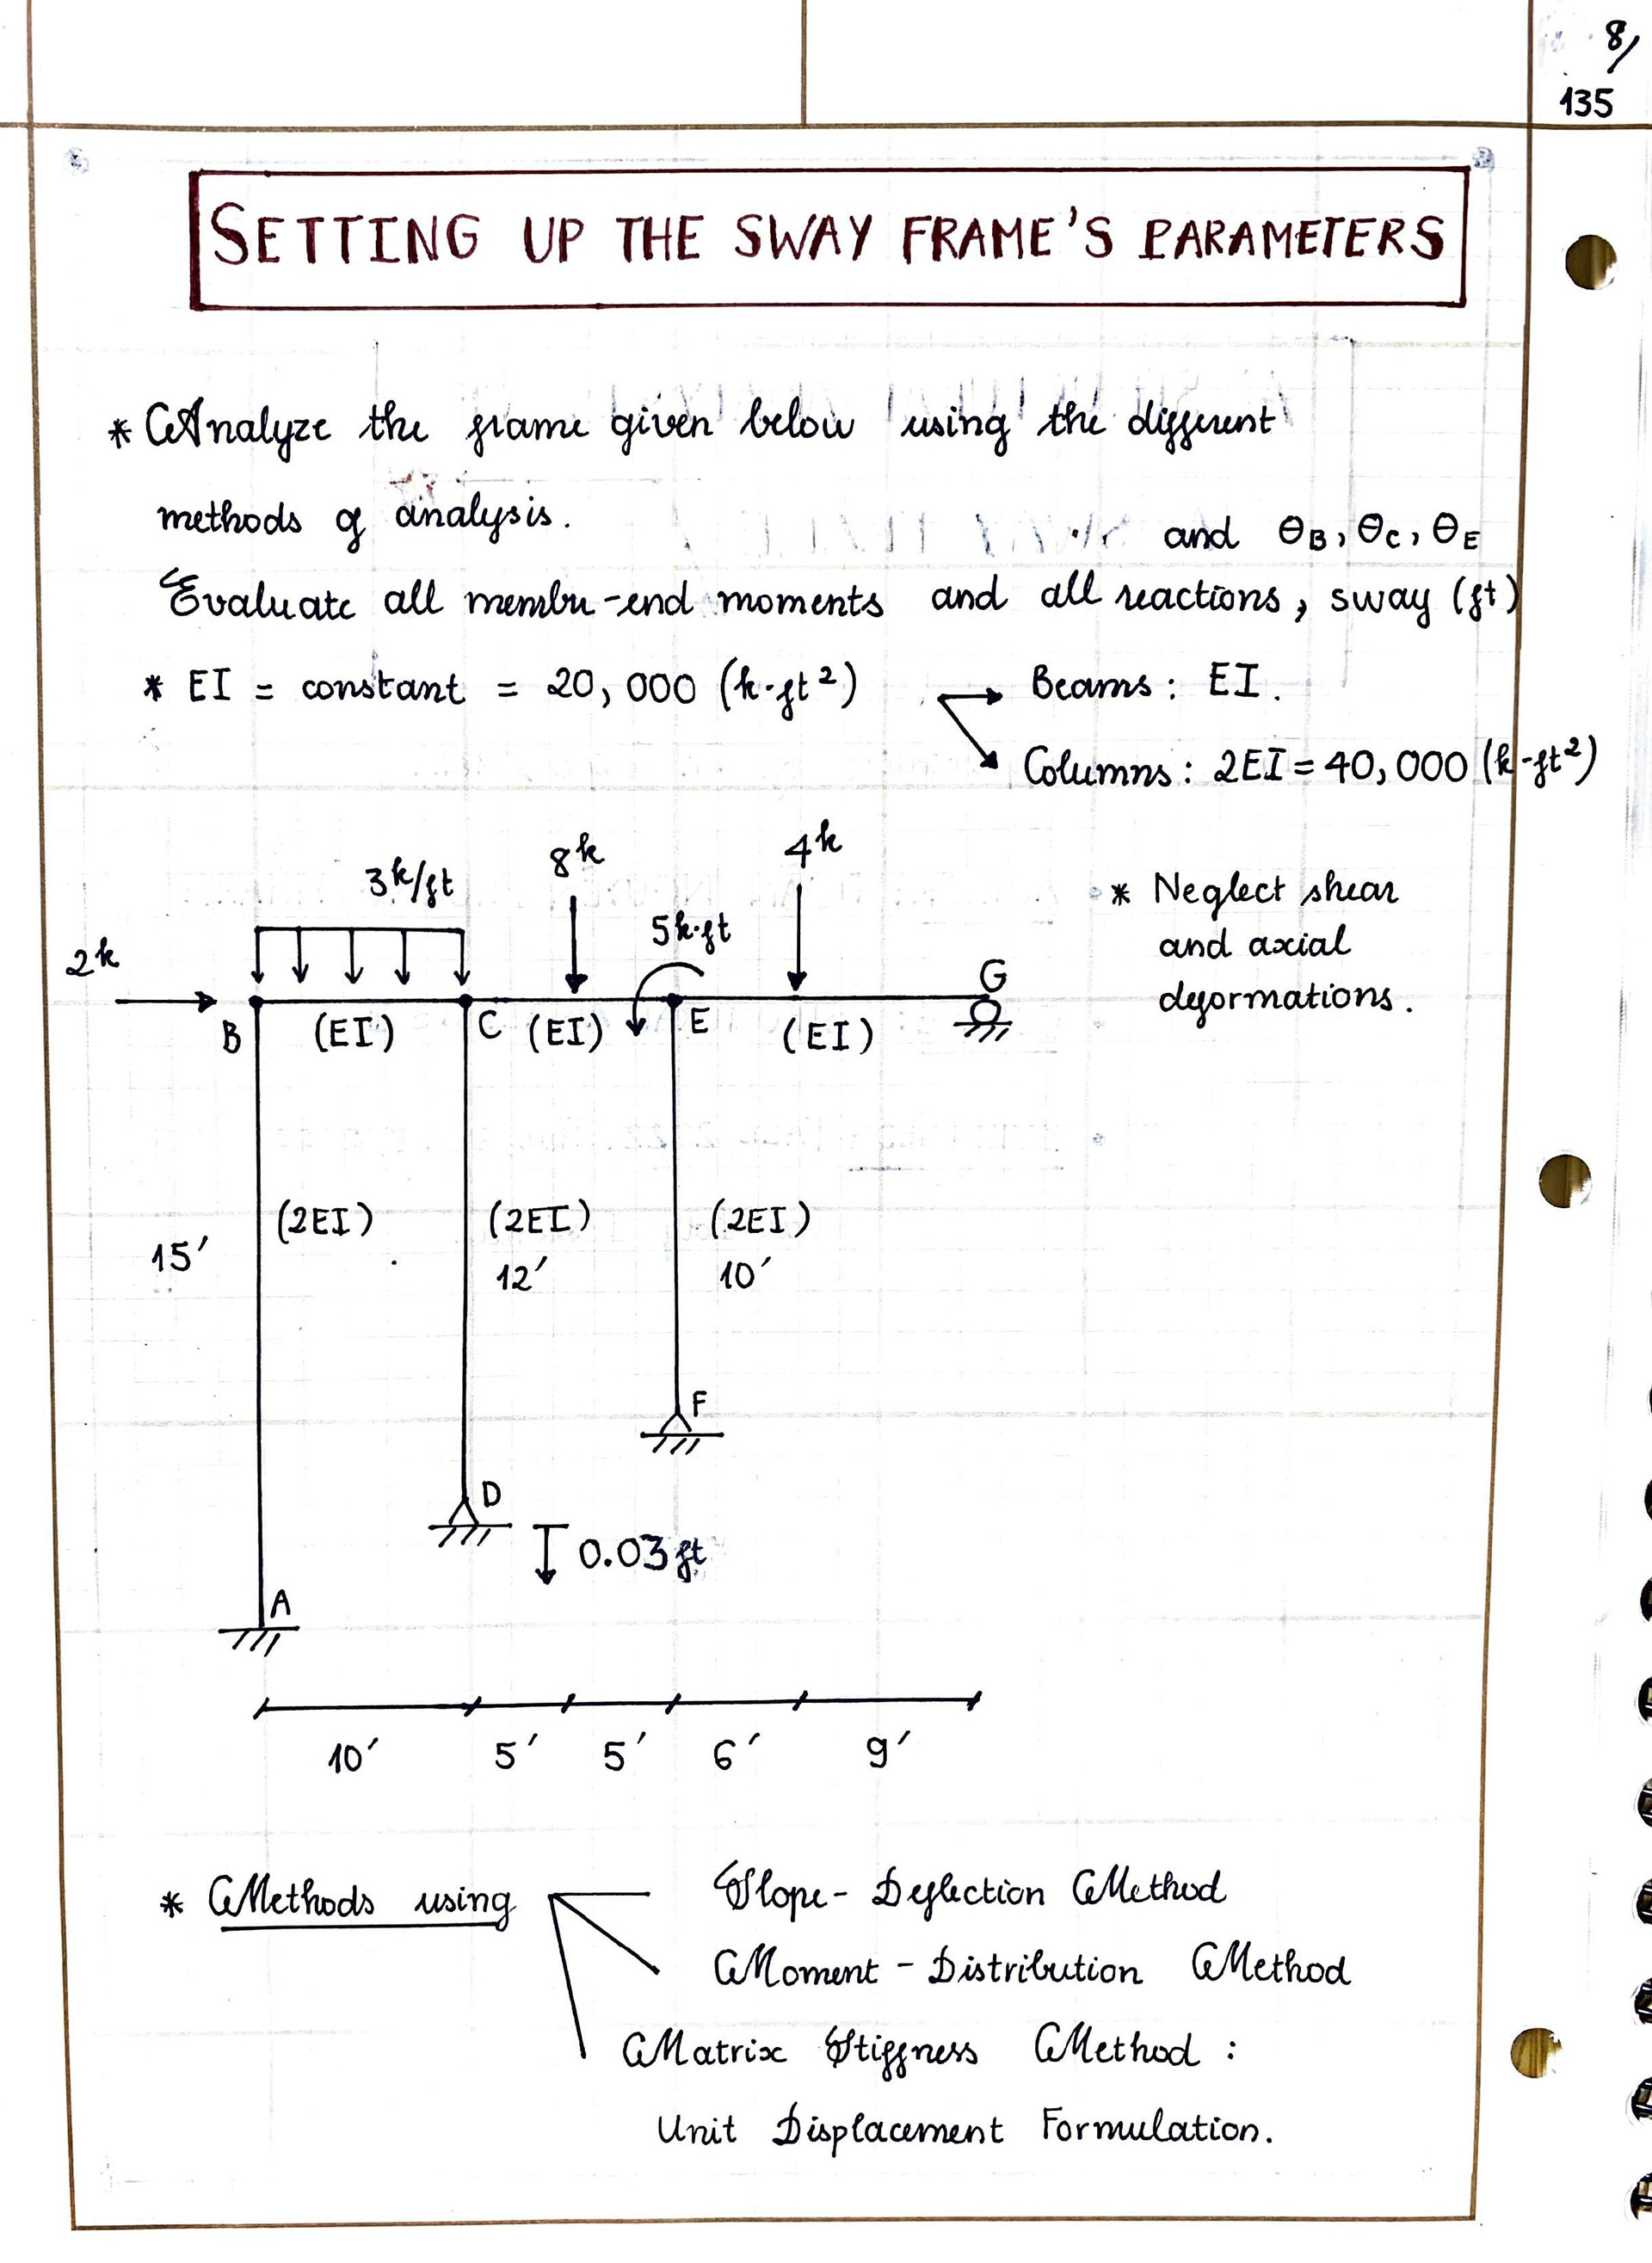 8/
135
SETTING UP THE SWAY FRAME'S PARAMETERS
* Analyze the frame given below using the different
methods of analysis.
and θB, θC, θE
Evaluate all member-end moments and all reactions, sway (ft)
* EI = constant = 20,000 (k·ft²)
Beams: EI.
Columns: 2EI = 40,000 (k-ft²)
3k/ft
8k
4k
2k
5k·ft
* Neglect shear
and axial
deformations.
B
(EI)
C
(EI)
E
(EI)
G
15'
(2EI)
(2EI)
12'
(2EI)
10'
F
D
0.03 ft
A
10'
5'
5'
6'
9'
* Methods using
Slope-Deflection Method
Moment-Distribution Method
Matrix Stiffness Method:
Unit Displacement Formulation.